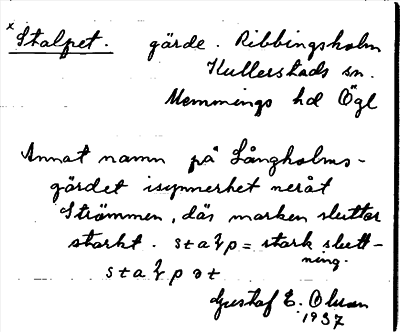 x Stalpet. gärde. Ribbingsholm
Kullerstads sn.
Memmings hd Ögl
Annat namn på Långholms-
gärdet isynnerhet neråt
Strömmen, där marken sluttar
starkt. staɫp = stark slutt-
ning.
staɫpət
Gustaf E. Olsson
1937